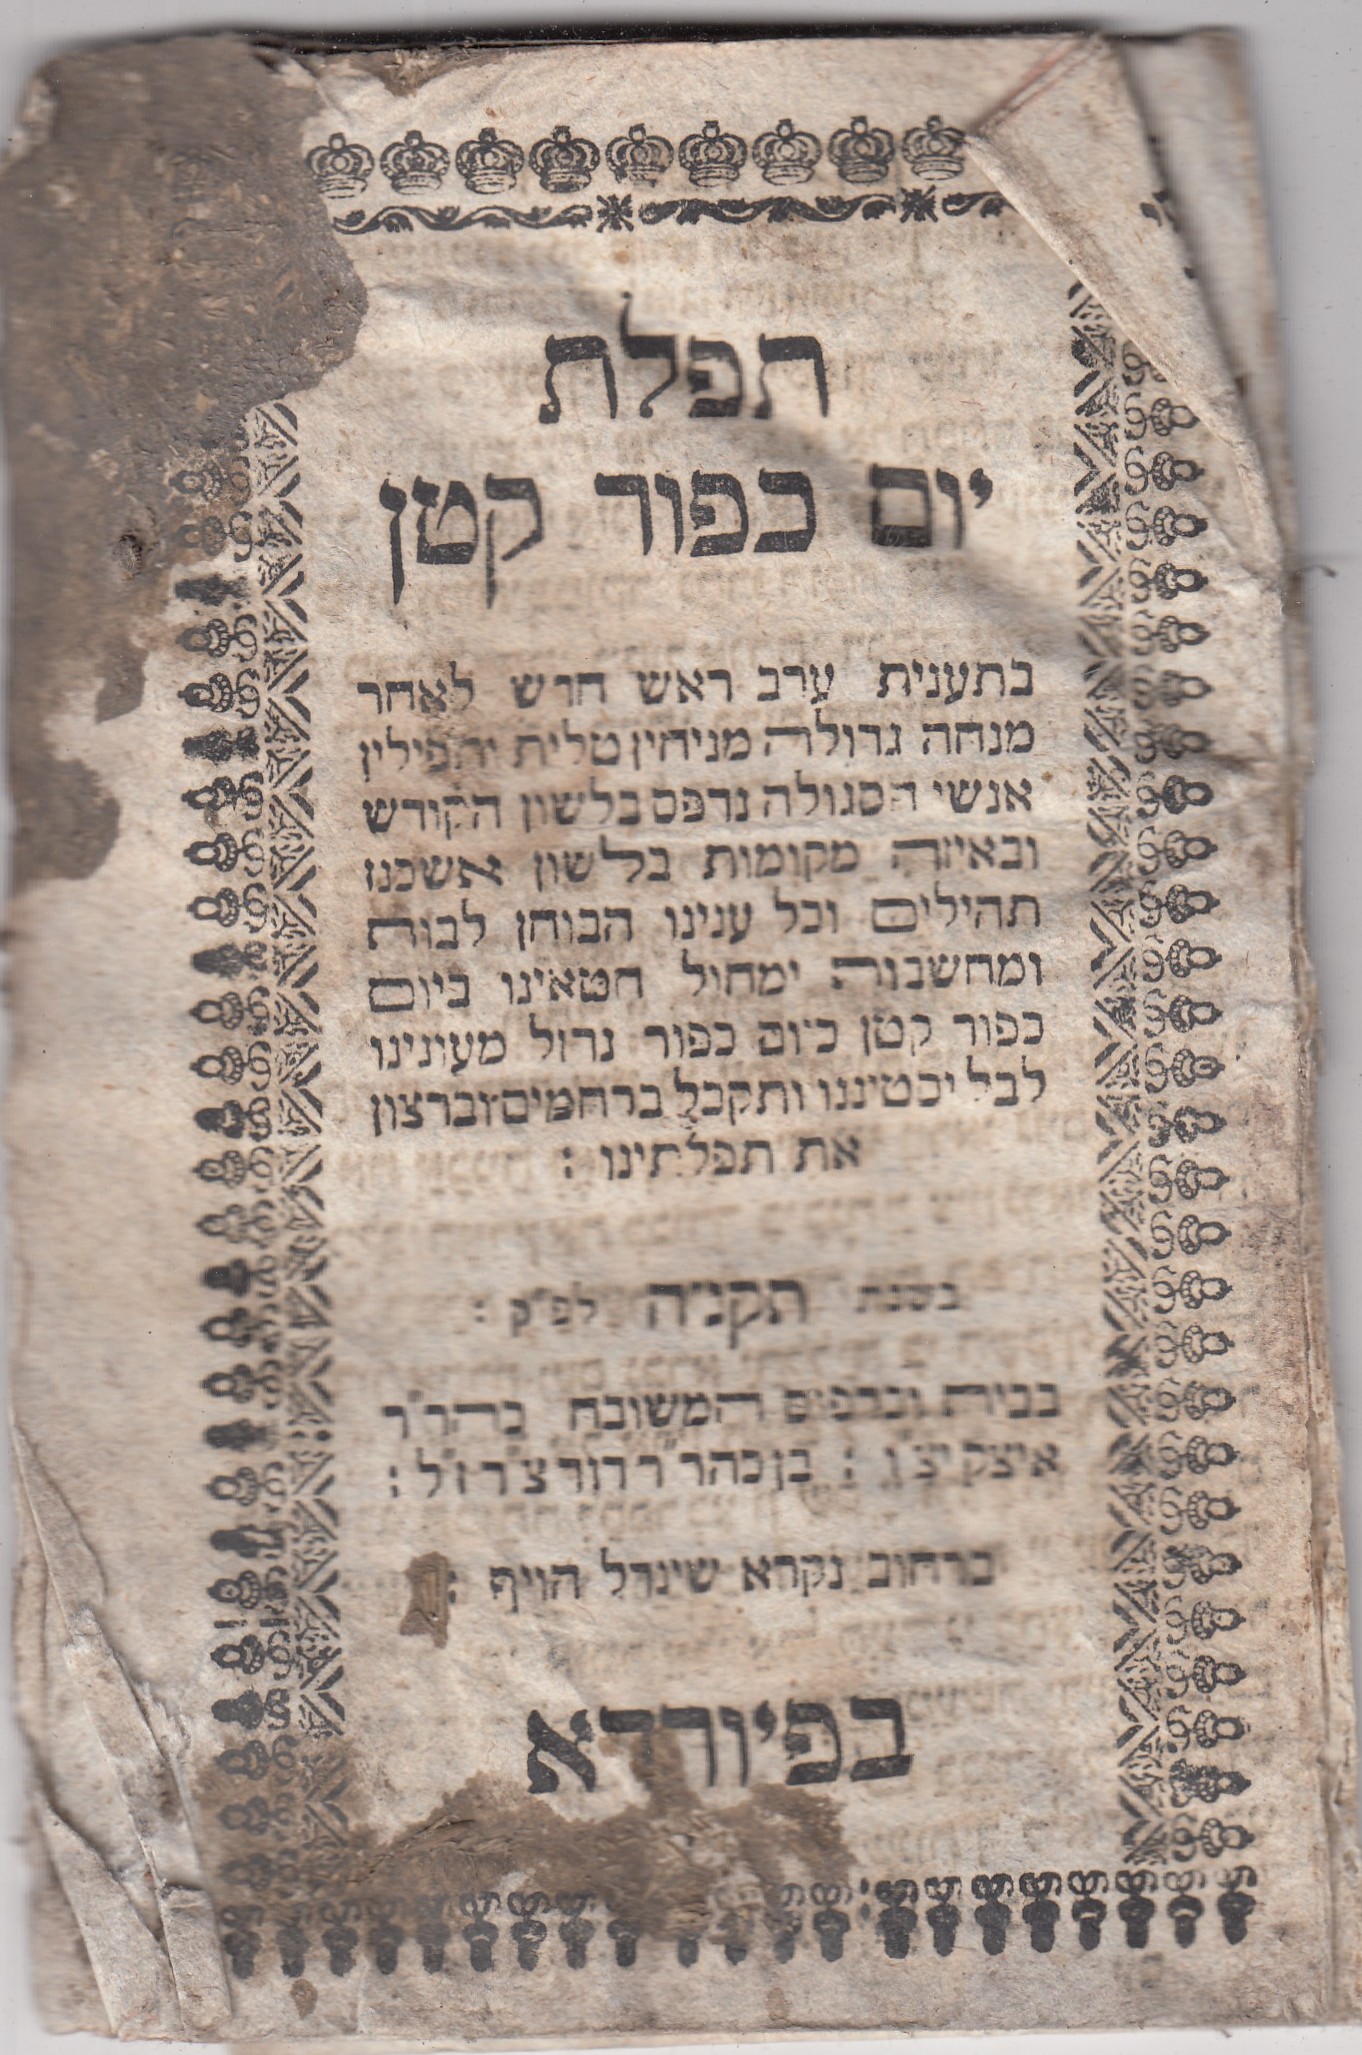 תפלת
יום כפור קטן
בתענית ערב ראש חדש לאחר
מנחה גדולה מניחין טלית ותפילין
אנשי הסגולה נדפס בלשון הקודש
ובאיזה מקומות בלשון אשכנז
תהילים וכל ענינו הבוחן לבות
ומחשבות ימחול חטאינו ביום
כפור קטן כיום כפור גדול מעונינו
לבל יכטיננו ותקבל ברחמים וברצון
את תפלתינו :
בשנת תקנ״ה לפ״ק :
בבית ובדפוס המשובח כהר״ר
איצק יצ״ו : בן כהר״ר דוד צ״ר ז״ל :
ברחוב נקרא שינדל הויף :
בפיורדא